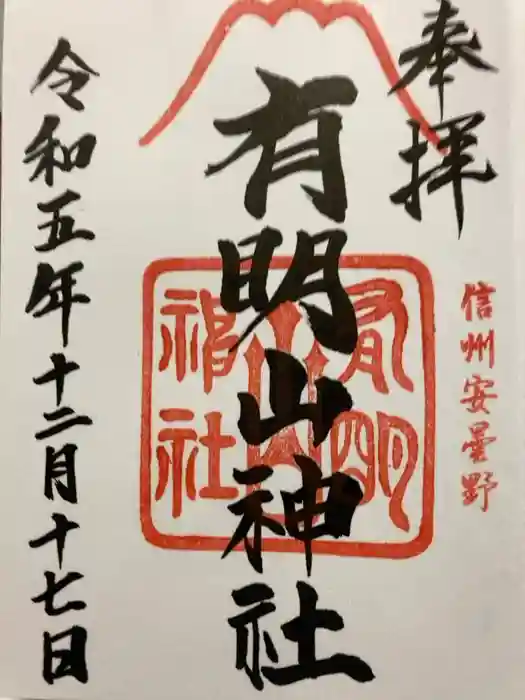 奉拝
信州安曇野
有明山神社
有明山神社
令和五年十二月十七日